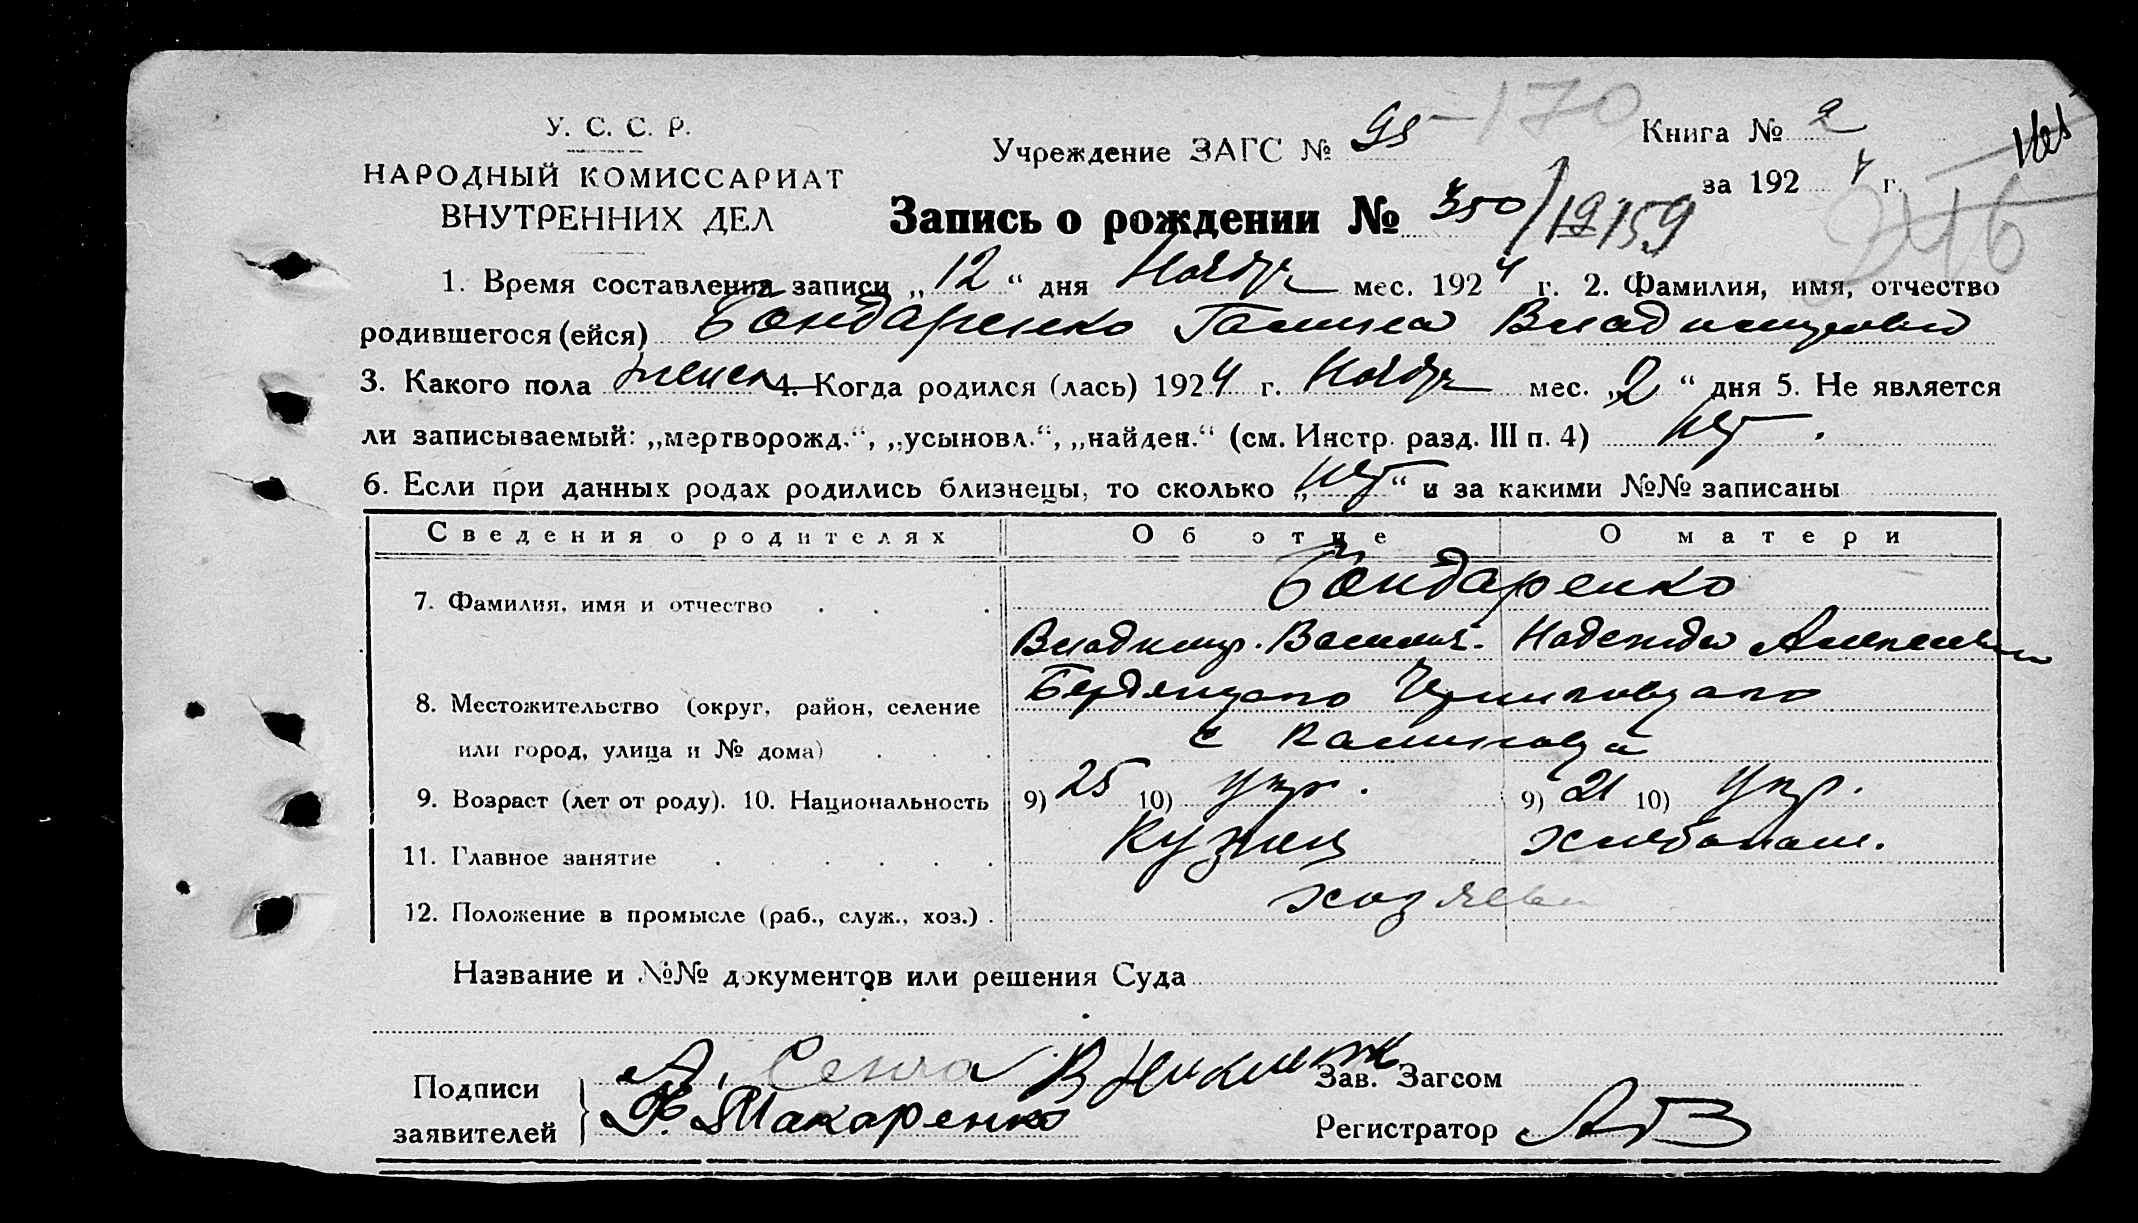 У. С. С. Р.
НАРОДНЫЙ КОМИССАРИАТ
ВНУТРЕННИХ ДЕЛ
Учреждение ЗАГС № 170
Книга № 2
за 1924 г.
246
Запись о рождении № 350/19 159
1. Время составления записи „12“ дня Ноябр мес. 1924 г. 2. Фамилия, имя, отчество
родившегося (ейся) Бондаренко Галина Владимировна
3. Какого пола женск 4. Когда родился (лась) 1924 г. Ноябр мес. „2“ дня 5. Не является
ли записываемый: „мертворожд.“, „усыновл.“, „найден.“ (см. Инстр. разд. III п. 4) нет.
6. Если при данных родах родились близнецы, то сколько „нет“ и за какими №№ записаны
Сведения о родителях Об отце О матери
7. Фамилия, имя и отчество . . . Бондаренко
Владимир. Василив. Надежда Алексеевн
8. Местожительство (округ, район, селение Бердянского
или город, улица и № дома) . . . с
9. Возраст (лет от роду). 10. Национальность 9) 25 10) укр. 9) 21 10) укр.
11. Главное занятие . . . . . . Кузнец хлебопаш.
12. Положение в промысле (раб., служ., хоз.) . хозяева
Название и №№ документов или решения Суда
Подписи
заявителей
А. В Никит
Макаренко
Зав. Загсом
Регистратор